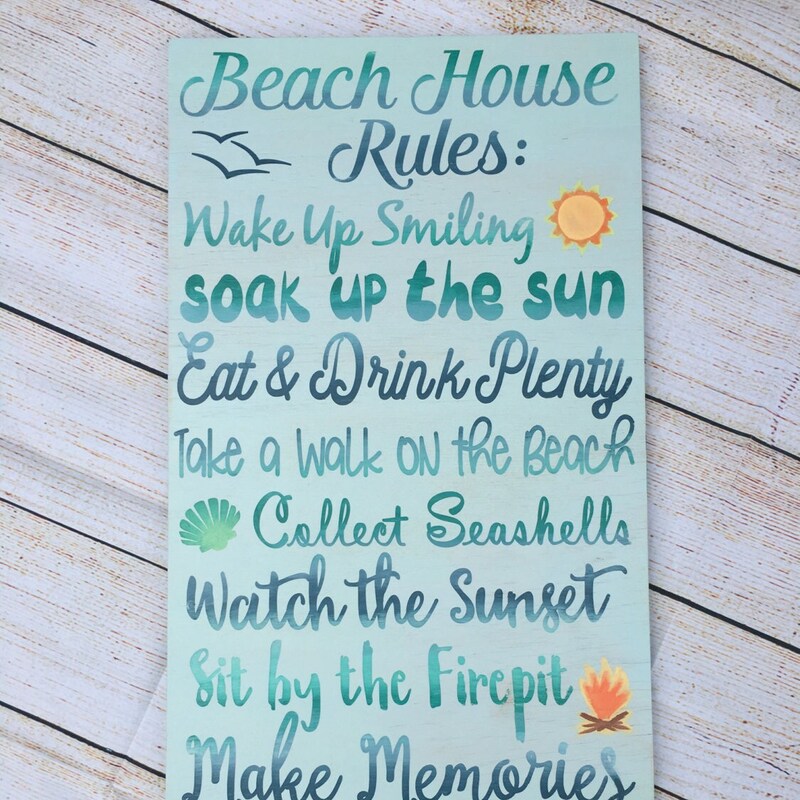 Beach House
Rules:
Wake Up Smiling
soak up the sun
Eat & Drink Plenty
Take a Walk on the Beach
Collect Seashells
Watch the Sunset
Sit by the Firepit
Make Memories